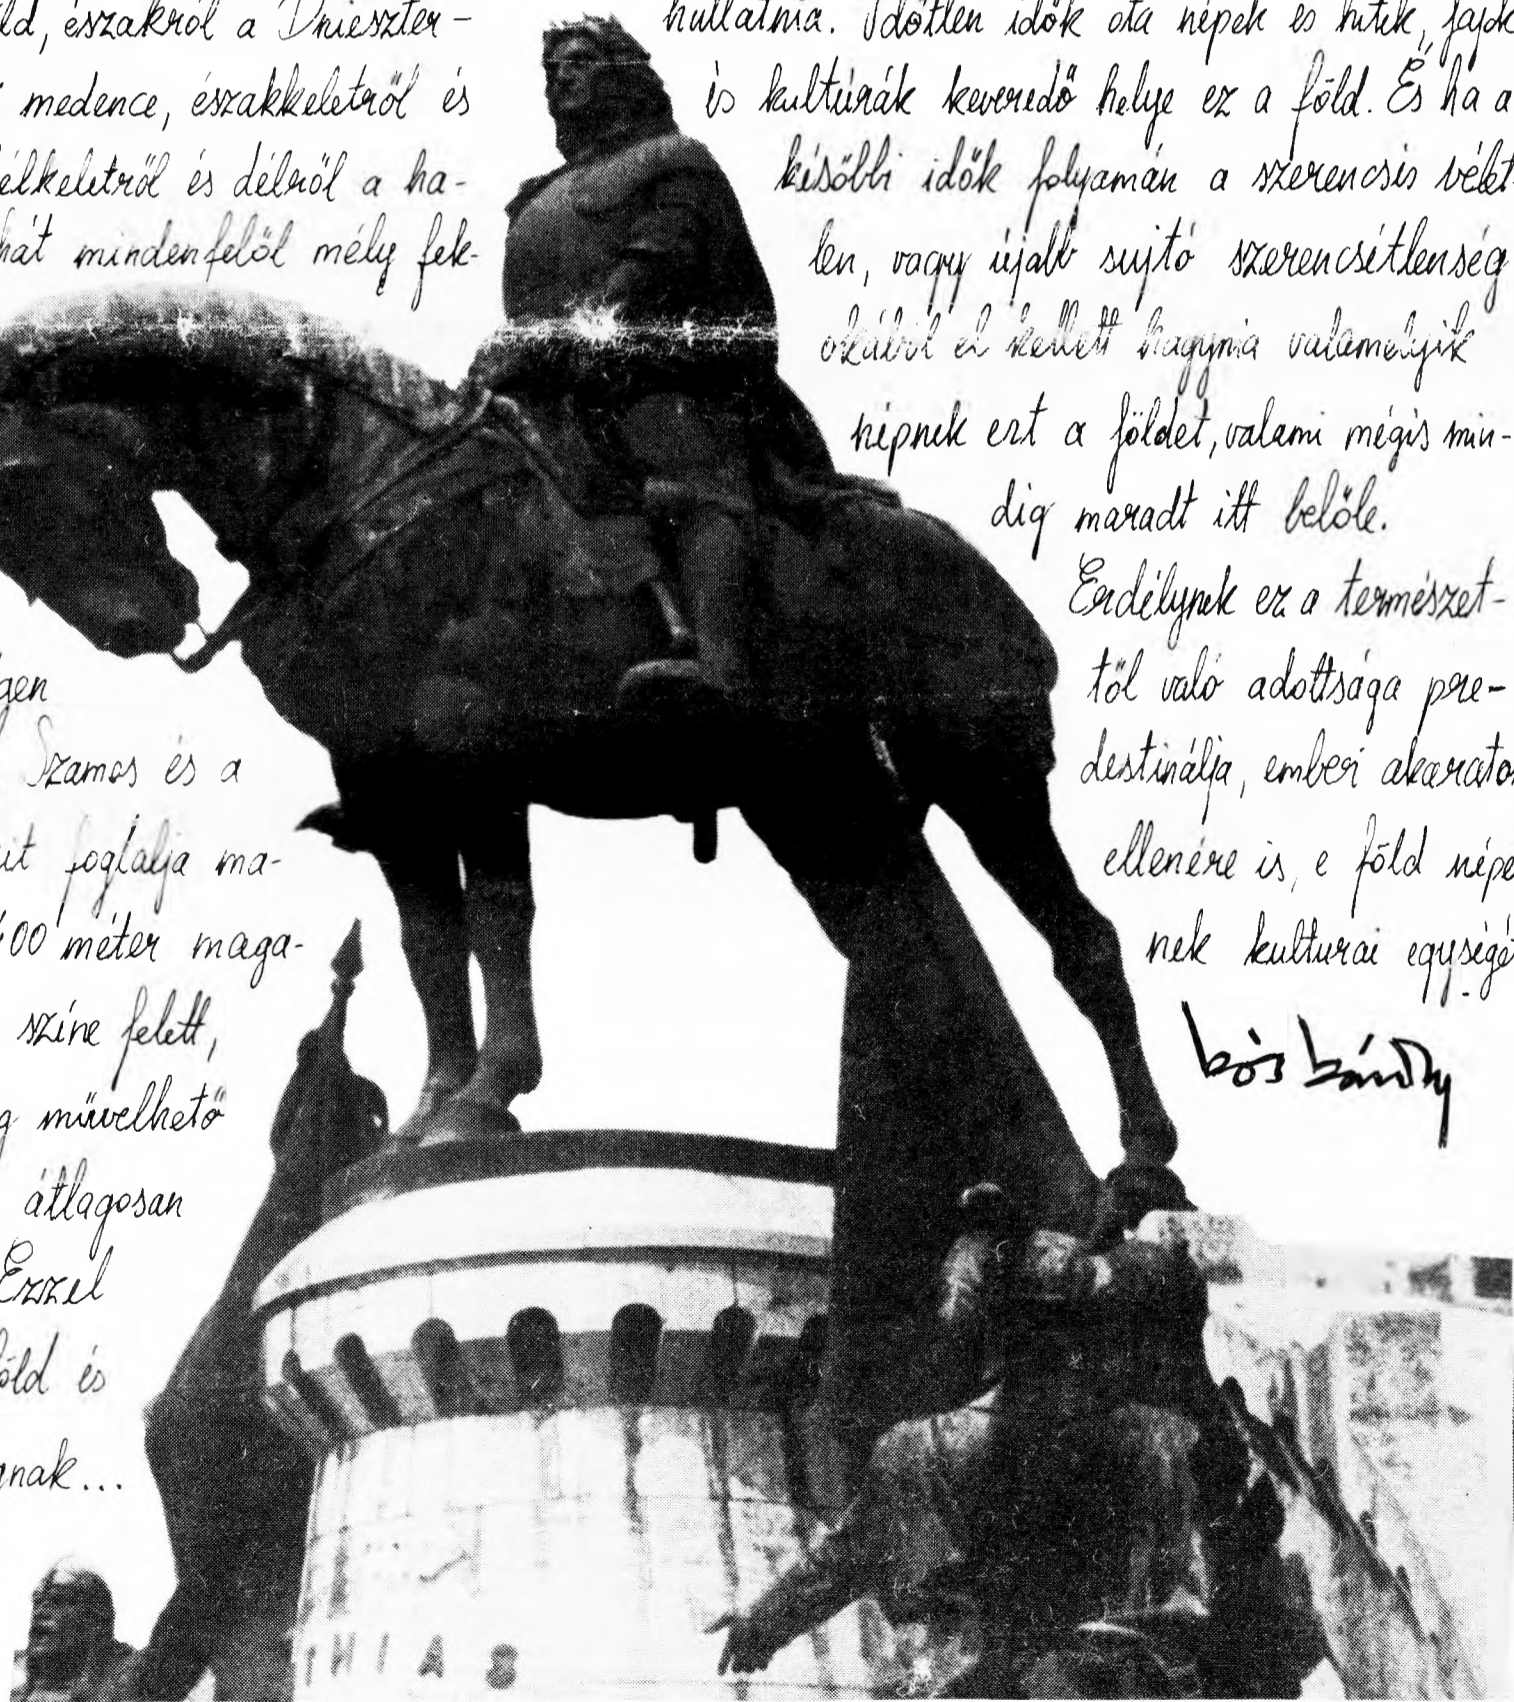 északról a Dnieszter-
medence, északkeletről és
délkeletről és délről a ha-
hát mindenfelől mély fek-
Szamos és a
foglalja ma-
méter maga-
színe felett,
művelhető
átlagosan
Ezzel
és
hullatnia. Időtlen idők óta népek és hitek, fajok
és kultúrák keveredő helye ez a föld. És ha a
későbbi idők folyamán a szerencsés vélet-
len, vagy újabb sujtó szerencsétlenség
okából el kellett hagynia valamelyik
népnek ezt a földet, valami mégis min-
dig maradt itt belőle.
Erdélynek ez a természet-
től való adottsága pre-
destinálja, emberi akaratok
ellenére is, e föld népé
nek kulturai egységé
kós károly
THIAS